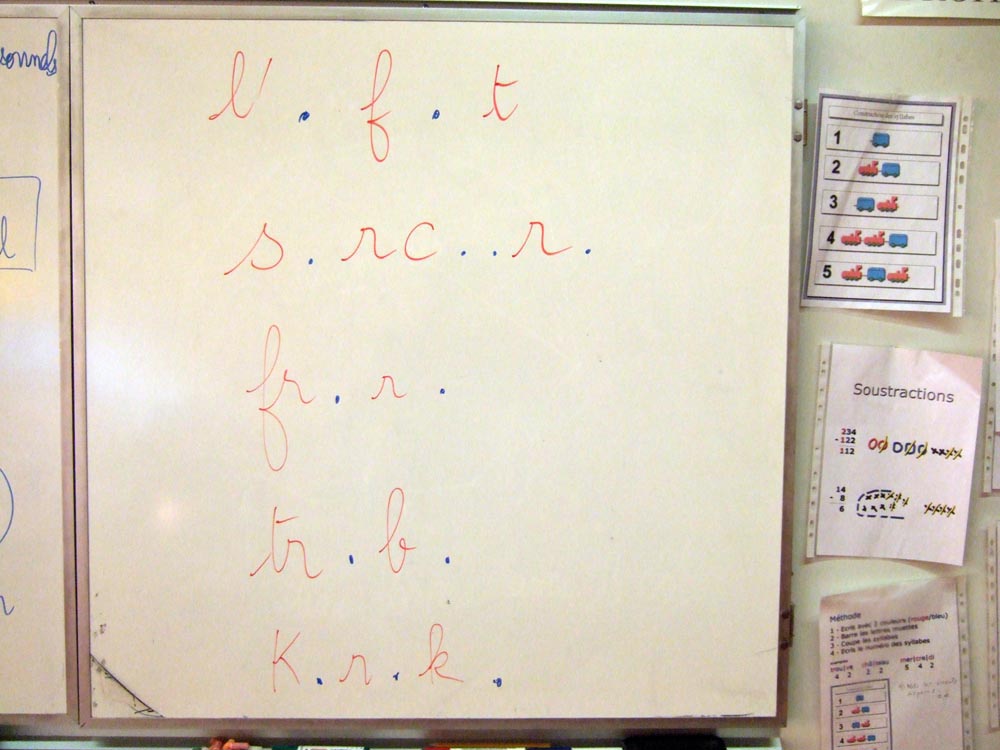 sounds
l' . f . t
s . rc . . r .
fr . r .
tr . b .
K . r . k .
Construction des syllabes
1
2
3
4
5
Soustractions
234
- 122
112
14
- 8
6
Méthode
1 - Ecris avec 2 couleurs (rouge/bleu)
2 - Barre les lettres muettes
3 - Coupe les syllabes
4 - Ecris le numéro des syllabes
4 2 2 2 5 4 2
1
2
3
4